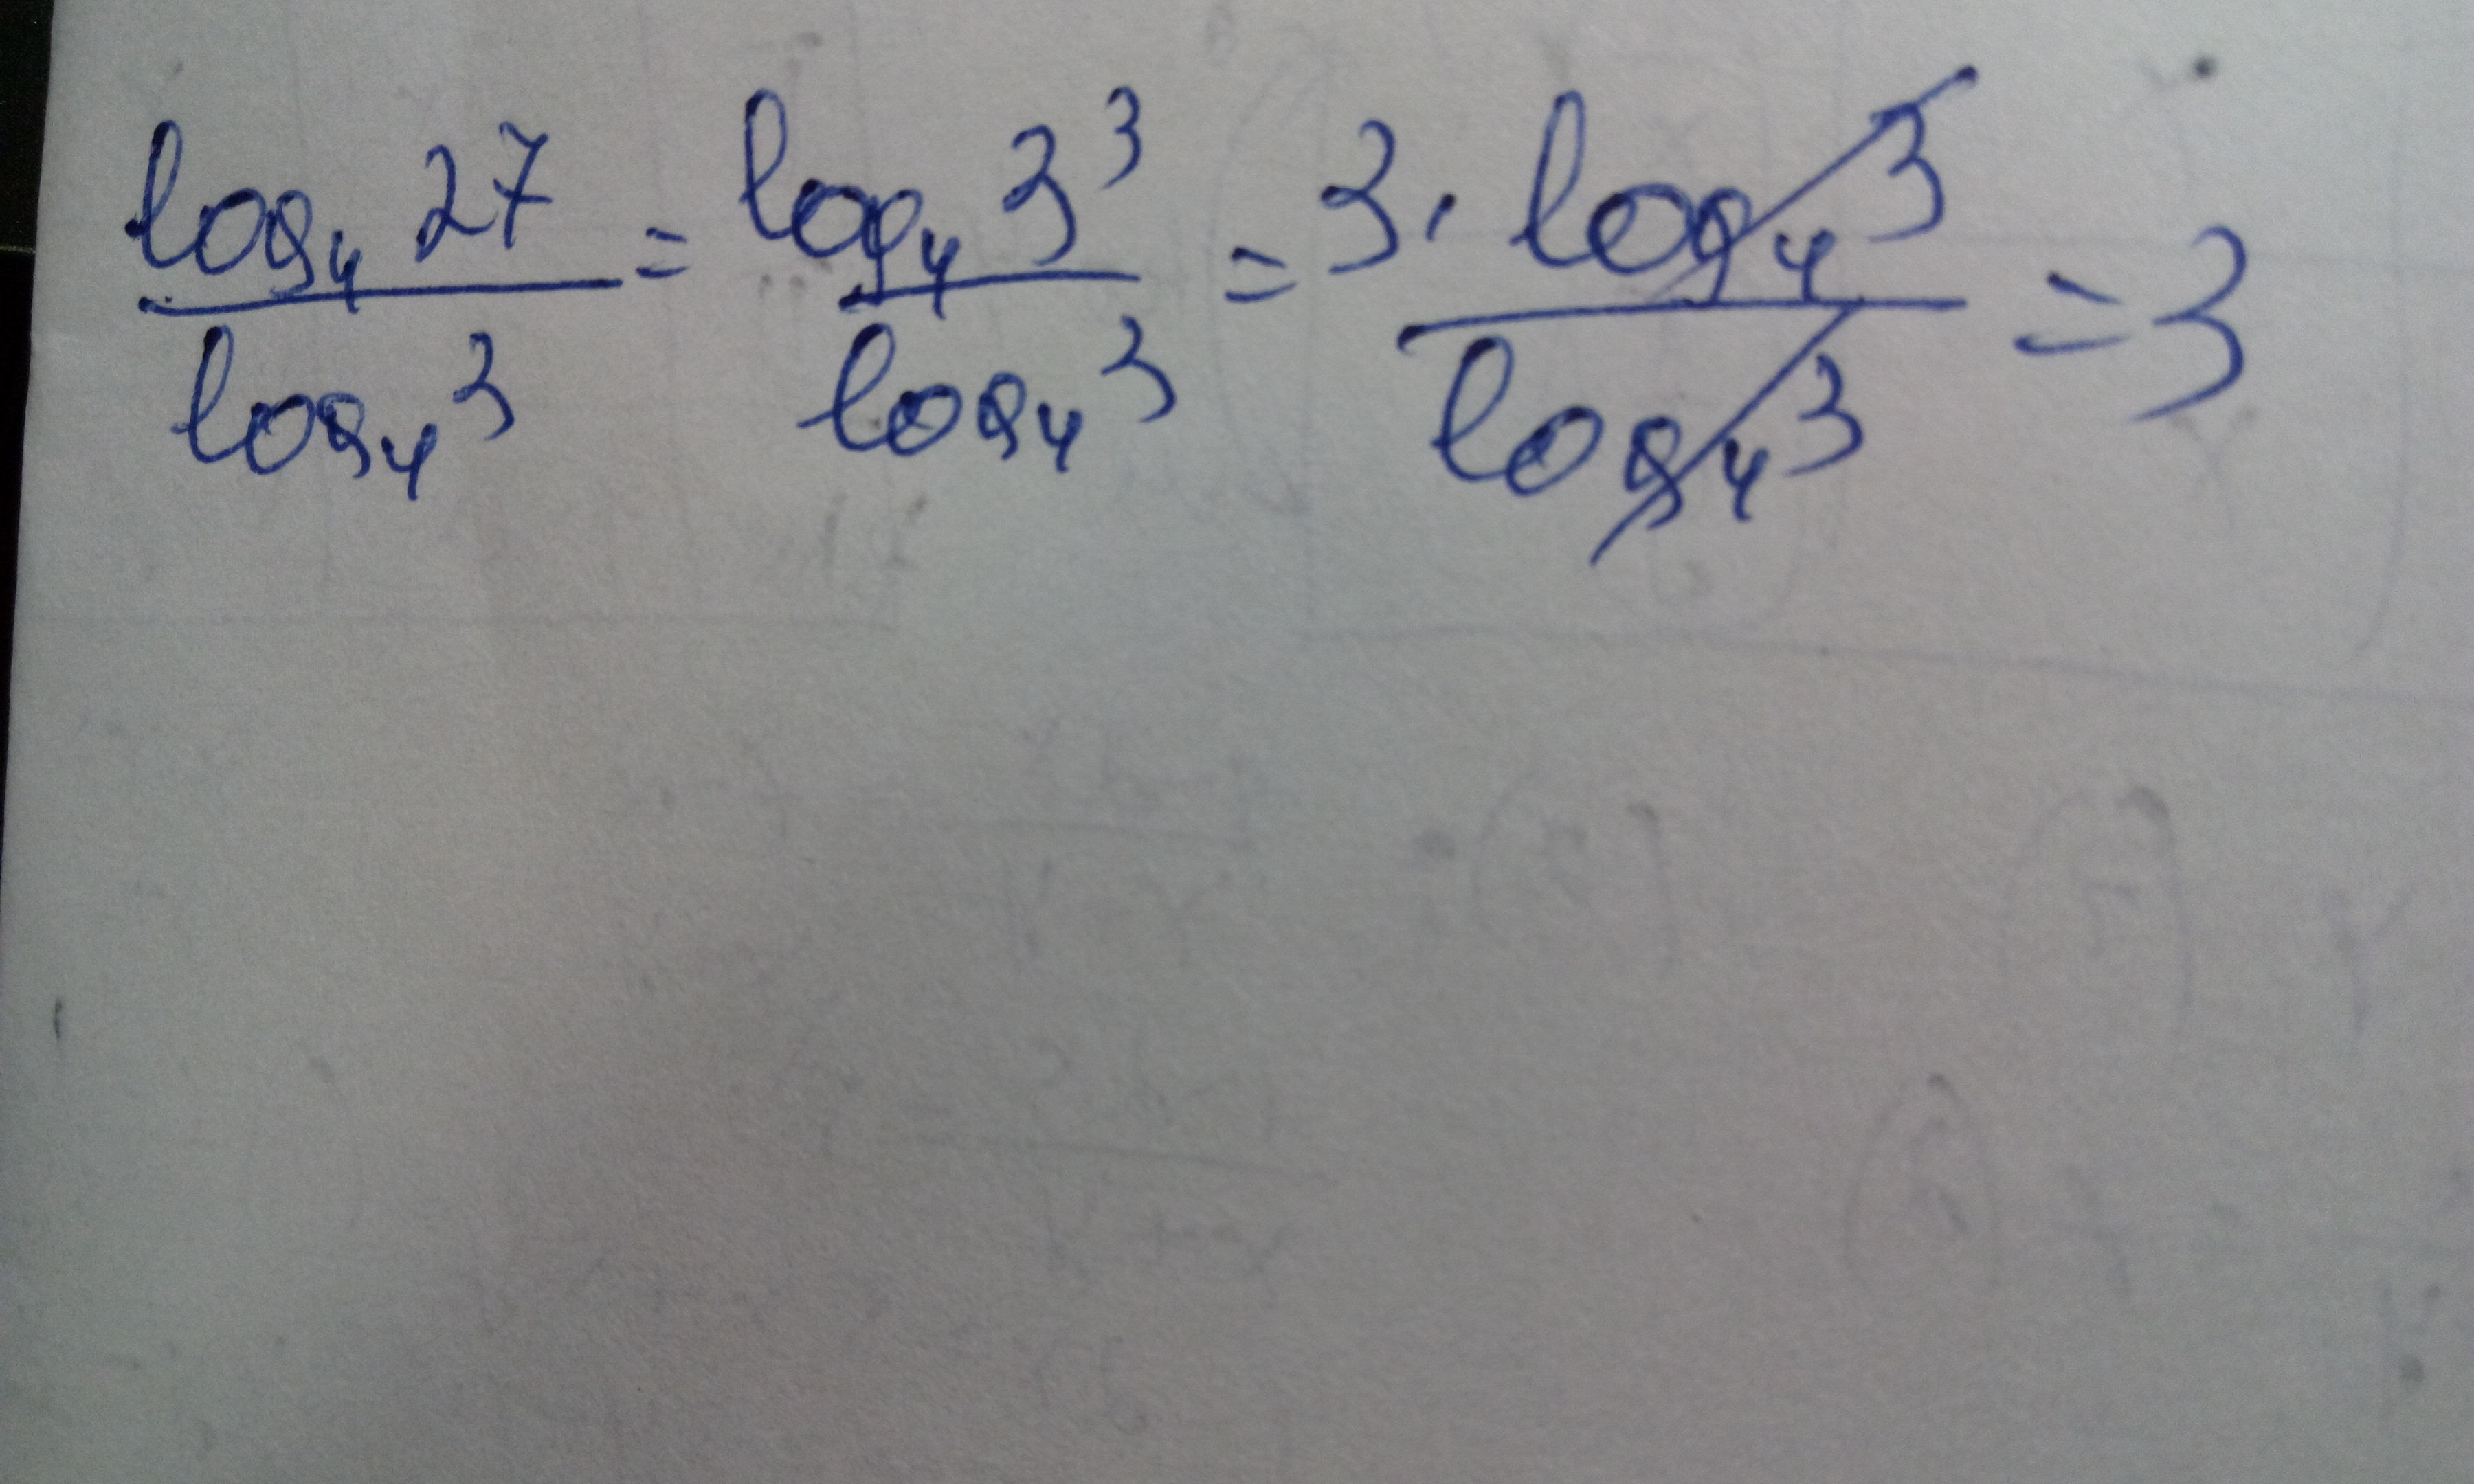 log₄ 27 / log₄ 3 = log₄ 3³ / log₄ 3 = 3 · log₄ 3 / log₄ 3 = 3